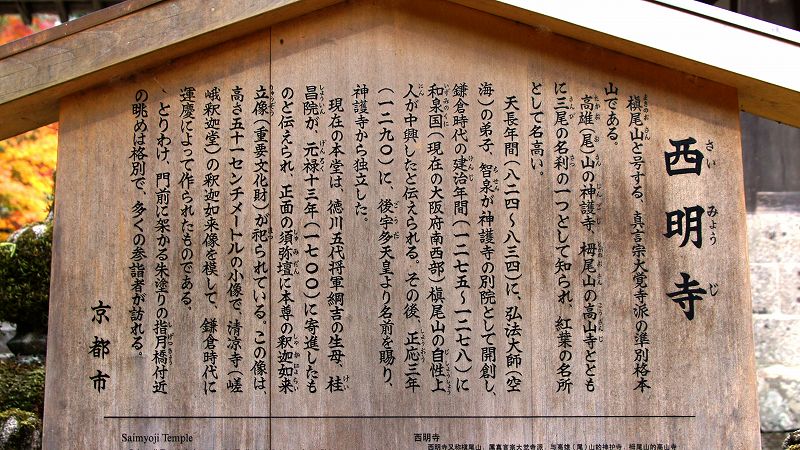 西明寺
槇尾山と号する、真言宗大覚寺派の準別格本
山である。
高雄(尾)山の神護寺、栂尾山の高山寺ととも
に三尾の名刹の一つとして知られ、紅葉の名所
として名高い。
天長年間(八二四〜八三四)に、弘法大師(空
海)の弟子、智泉が神護寺の別院として開創し、
鎌倉時代の建治年間(一二七五〜一二七八)に
和泉国(現在の大阪府南西部)槇尾山の自性上
人が中興したと伝えられる。その後、正応三年
(一二九〇)に、後宇多天皇より名前を賜り、
神護寺から独立した。
現在の本堂は、徳川五代将軍綱吉の生母、桂
昌院が、元禄十三年(一七〇〇)に寄進したも
のと伝えられ、正面の須弥壇に本尊の釈迦如来
立像(重要文化財)が祀られている。この像は、
高さ五十一センチメートルの小像で、清凉寺(嵯
峨釈迦堂)の釈迦如来像を模して、鎌倉時代に
運慶によって作られたものである。
とりわけ、門前に架かる朱塗りの指月橋付近
の眺めは格別で、多くの参詣者が訪れる。
京都市
Saimyoji Temple
西明寺
西明寺又称槇尾山，属真言宗大觉寺派，与高雄（尾）山的神护寺、栂尾山的高山寺